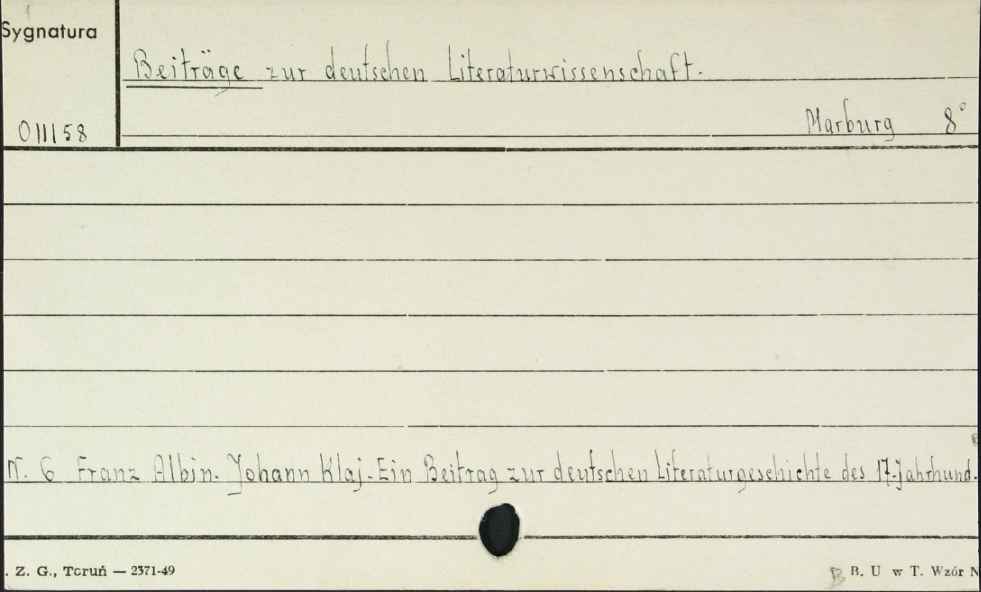 Sygnatura
Beiträge zur deutschen Literaturwissenschaft.
011158
Marburg 8°
N. 6 Franz Albin. Johann Klaj. Ein Beitrag zur deutschen Literaturgeschichte des 17. Jahrhund.
. Z. G., Toruń — 2371-49
B. U w T. Wzór N